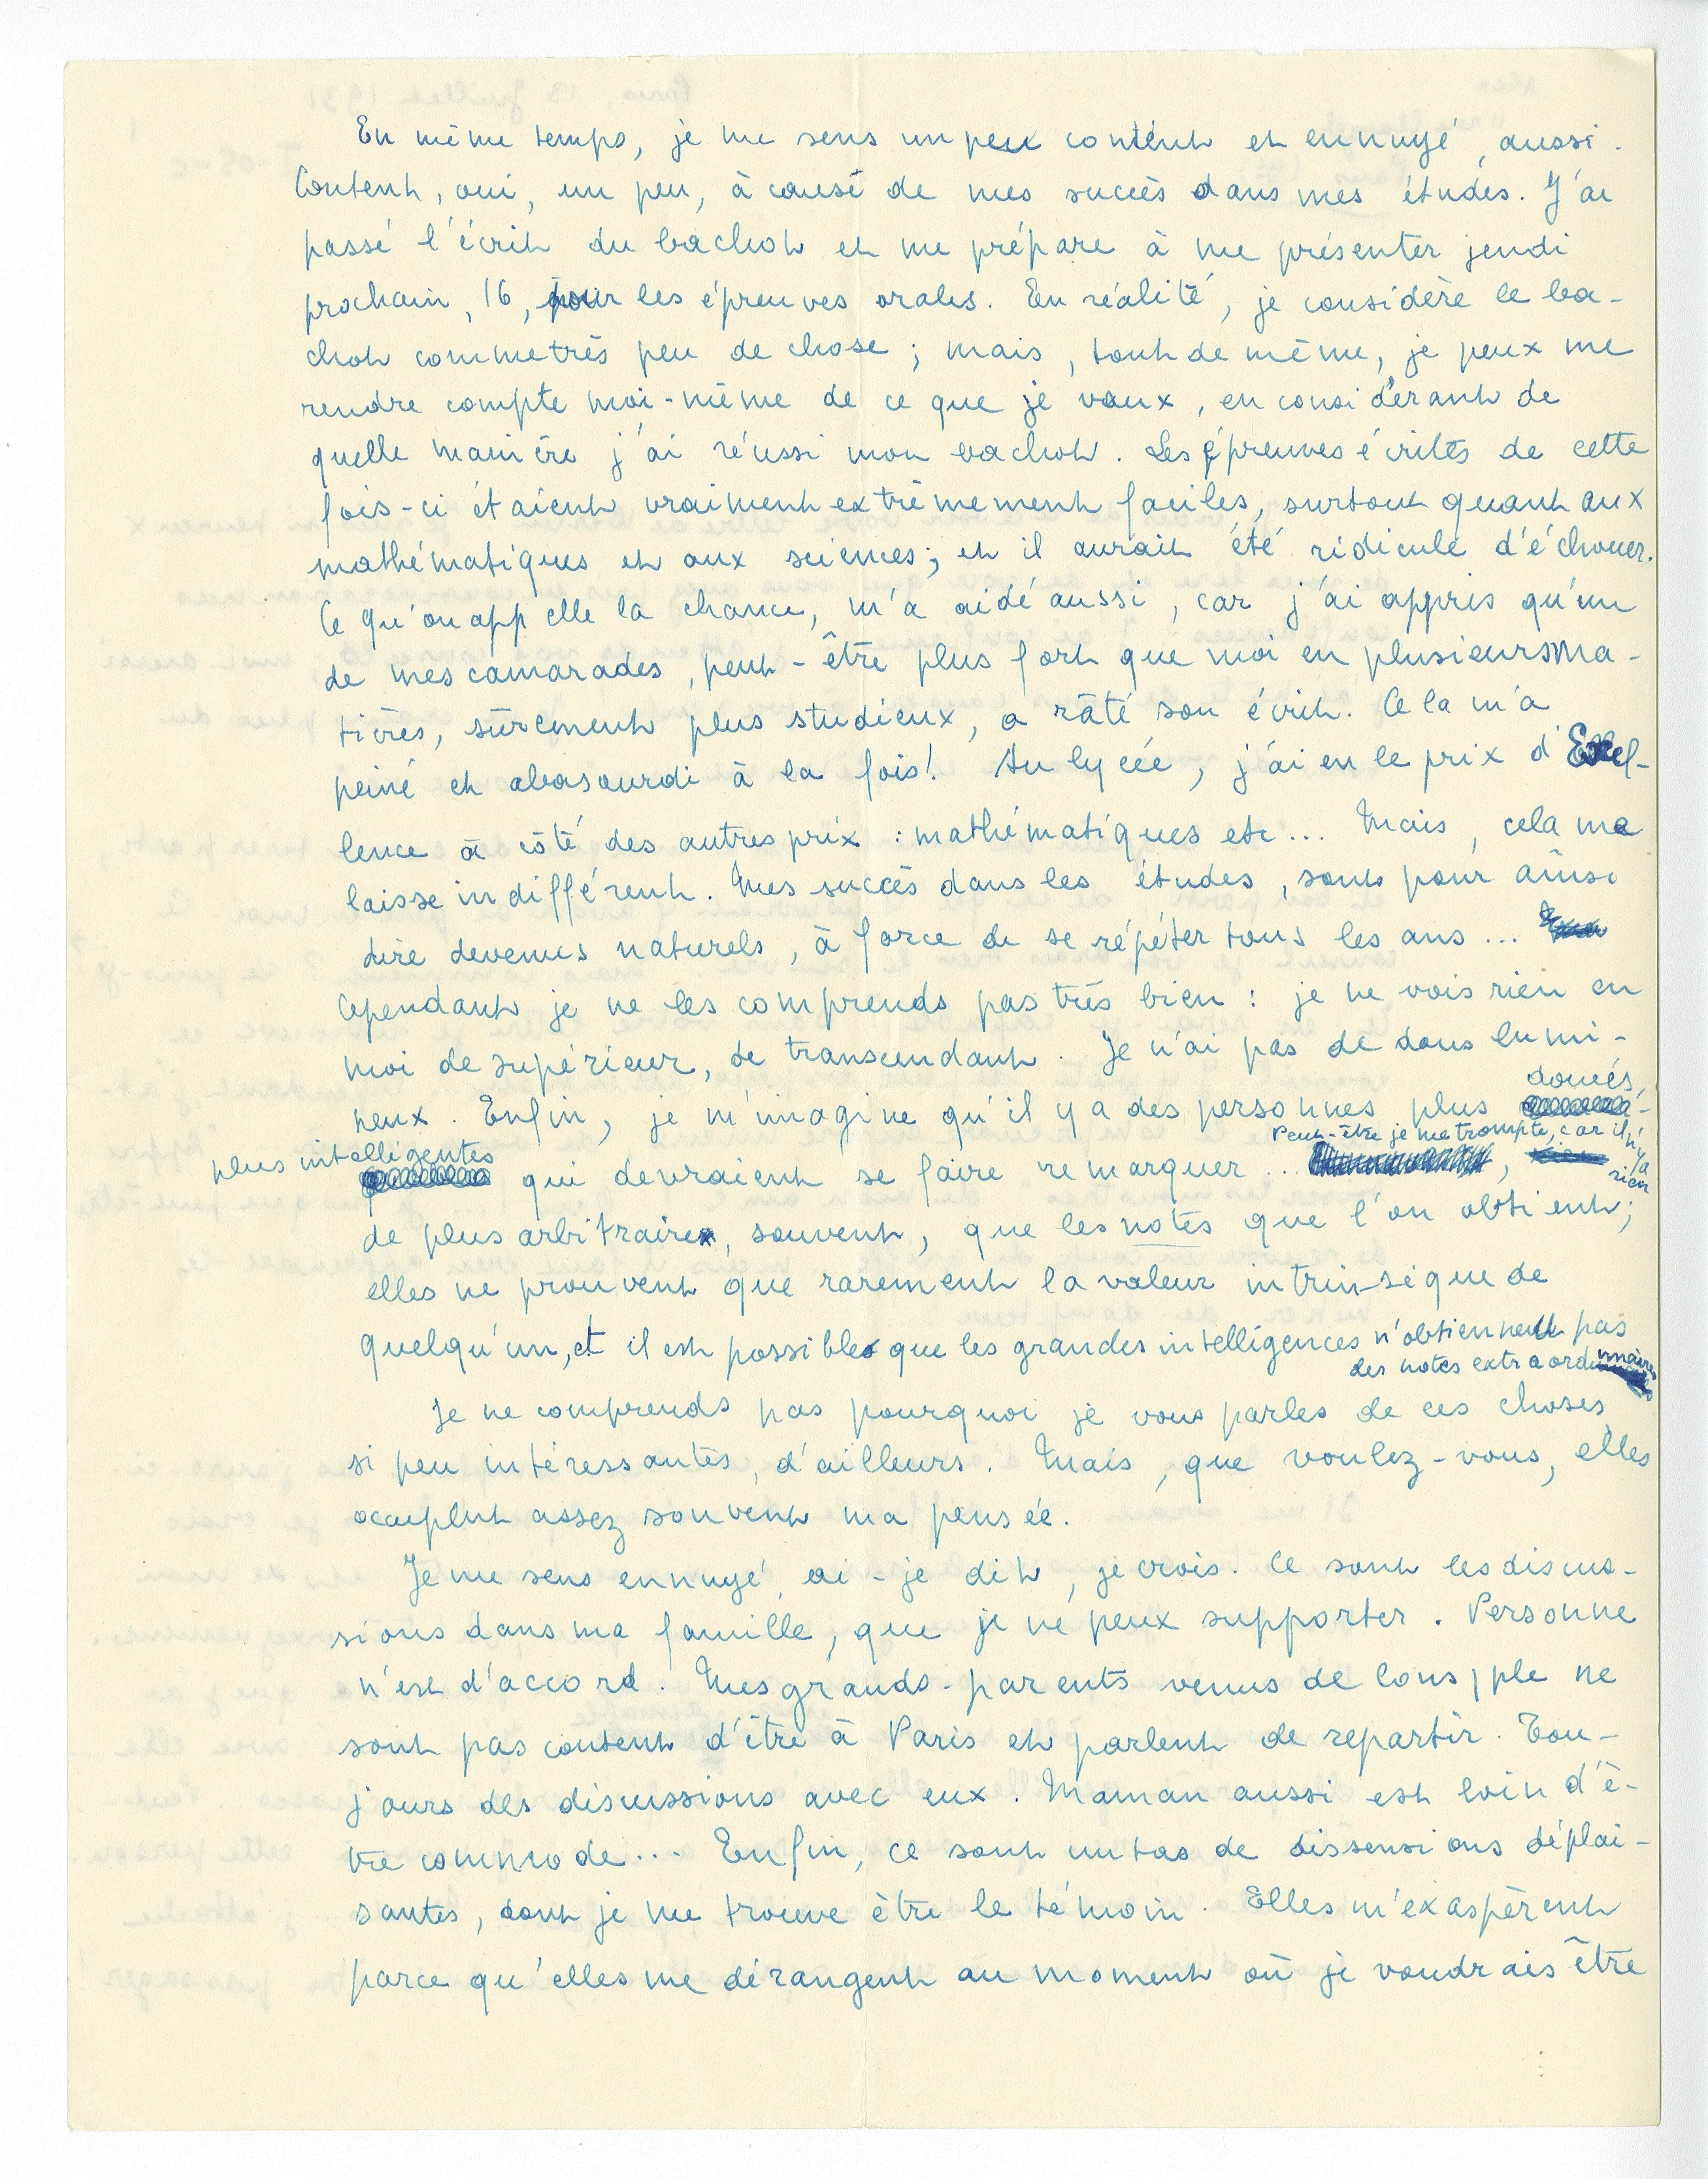 En même temps, je me sens un peu content et ennuyé, aussi.
Content, oui, un peu, à cause de mes succès dans mes études. J'ai
passé l'écrit du bachot et me prépare à me présenter jeudi
prochain, 16, pour les épreuves orales. En réalité, je considère le ba-
chot comme très peu de chose ; mais, tout de même, je peux me
rendre compte moi-même de ce que je vaux, en considérant de
quelle manière j'ai réussi mon bachot. Les épreuves écrites de cette
fois-ci étaient vraiment extrêmement faciles, surtout quant aux
mathématiques et aux sciences; et il aurait été ridicule d'échouer.
Ce qu'on appelle la chance, m'a aidé aussi, car j'ai appris qu'un
de mes camarades, peut-être plus fort que moi en plusieurs ma-
tières, sûrement plus studieux, a râté son écrit. Cela m'a
peiné et abasourdi à la fois! Au lycée, j'ai eu le prix d'Excel-
lence à côté des autres prix : mathématiques etc... Mais, cela me
laisse indifférent. Mes succès dans les études, sont pour ainsi
dire devenus naturels, à force de se répéter tous les ans...
Cependant je ne les comprends pas très bien : je ne vois rien en
moi de supérieur, de transcendant. Je n'ai pas de dons lumi-
neux. Enfin, je m'imagine qu'il y a des personnes plus doués,
plus intelligentes qui devraient se faire remarquer... Peut-être je me trompe, car il n'y a rien
de plus arbitraire, souvent, que les notes que l'on obtient;
elles ne prouvent que rarement la valeur intrinsèque de
quelqu'un, et il est possible que les grandes intelligences n'obtiennent pas
des notes extraordinnaires
Je ne comprends pas pourquoi je vous parles de ces choses,
si peu intéressantes, d'ailleurs. Mais, que voulez-vous, elles
occupent assez souvent ma pensée.
Je me sens ennuyé, ai-je dit, je crois. Ce sont les discus-
sions dans ma famille, que je ne peux supporter. Personne
n'est d'accord. Mes grands-parents venus de Cons/ple ne
sont pas content d'être à Paris et parlent de repartir. Tou-
jours des discussions avec eux. Maman aussi est loin d'ê-
tre commode... Enfin, ce sont un tas de dissensions déplai-
santes, dont je me trouve être le témoin. Elles m'exaspèrent
parce qu'elles me dérangent au moment où je voudrais être